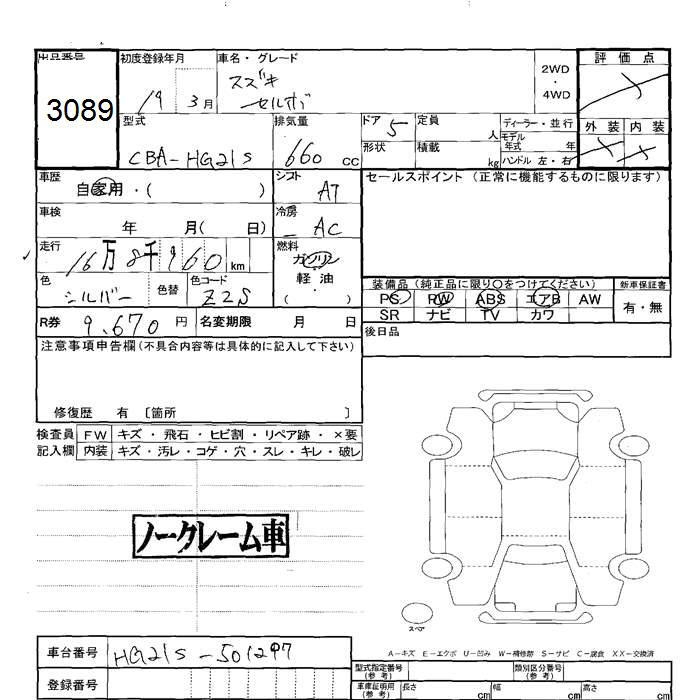 出品番号
3089
初度登録年月
19 3月
車名・グレード
スズキ
セルボ
2WD
・
4WD
評価点
外装 内装
型式
CBA-HG21S
排気量
660 cc
ドア
5
定員
人
形状
積載
kg
ディーラー・並行
モデル
年式 年
ハンドル 左・右
車歴
自家用・( )
シフト
AT
車検
年 月( 日)
冷房
AC
走行
16万8千960 km
燃料
ガソリン
軽油
( )
色
シルバー
色替
色コード
Z2S
R券 9,670 円
名変期限 月 日
セールスポイント(正常に機能するものに限ります)
装備品(純正品に限り○をつけてください)
PS PW ABS エアB AW
SR ナビ TV カワ
新車保証書
有・無
後日品
注意事項申告欄(不具合内容等は具体的に記入して下さい)
修復歴 有 〔箇所 〕
検査員 FW キズ・飛石・ヒビ割・リペア跡・×要
記入欄 内装 キズ・汚レ・コゲ・穴・スレ・キレ・破レ
ノークレーム車
スペア
A-キズ E-エクボ U-凹み W-補修跡 S-サビ C-腐食 XX-交換済
車台番号
HG21S-501297
登録番号
型式指定番号
(参考)
類別区分番号
(参考)
車庫証明用
(参考)
長さ cm
幅 cm
高さ cm